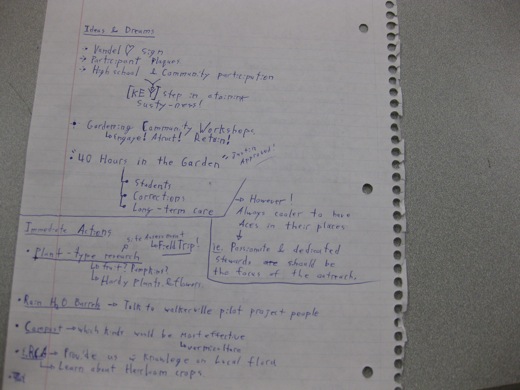 Ideas & Dreams
→ Vandel ♡ sign
→ Participant Plaques
→ High school & Community participation
[KEY] step in ataining
Susty-ness!
• Gardening Community Workshops
↳ Engage! Atract! Retain!
• 40 Hours in the Garden Approved!
Students
Corrections
Long-term care
→ However!
Always cooler to have
Aces in their places
↓
ie. Passionate & dedicated
stewards should be
the focus of the outreach.
Immediate Actions
↳ Field Trip!
• Plant-type research
↳ Fruit? Pumpkins?
↳ Hardy plants & flowers.
• Rain H2O Barrels → Talk to walkerville pilot project people
• Compost → which kinds would be most effective
↳ vermiculture
→ Provide us w knowledge on Local flora
↳ Learn about Heirloom crops